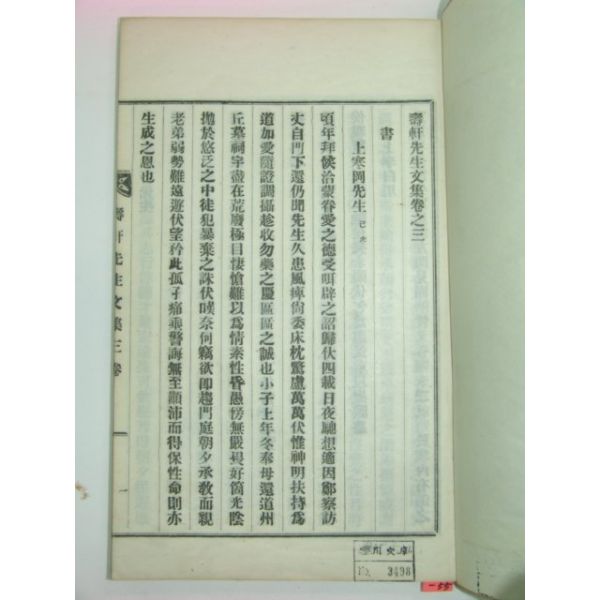 壽軒先生文集卷之三
書
上寒岡先生 己未
頃年拜候洽蒙眷愛之德受咡辟之詔歸伏四載日夜馳想適因鄭察訪
丈自門下還仍聞先生久患風痺尙委床枕驚慮萬萬伏惟神明扶持爲
道加愛隨證調攝趁收勿藥之慶區區之誠也小子上年冬奉母還道州
丘墓祠宇盡在荒廢極目悽愴難以爲情素性昏愚傍無嚴畏好箇光陰
抛於悠泛之中徒犯暴棄之誅伏嘆奈何竊欲卽趨門庭朝夕承敎而親
老弟弱勢難遠遊伏望矜此孤孑痛乘警誨無至顚沛而得保性命則亦
生成之恩也
壽軒先生文集三卷
一
文庫
No. 3498
-55